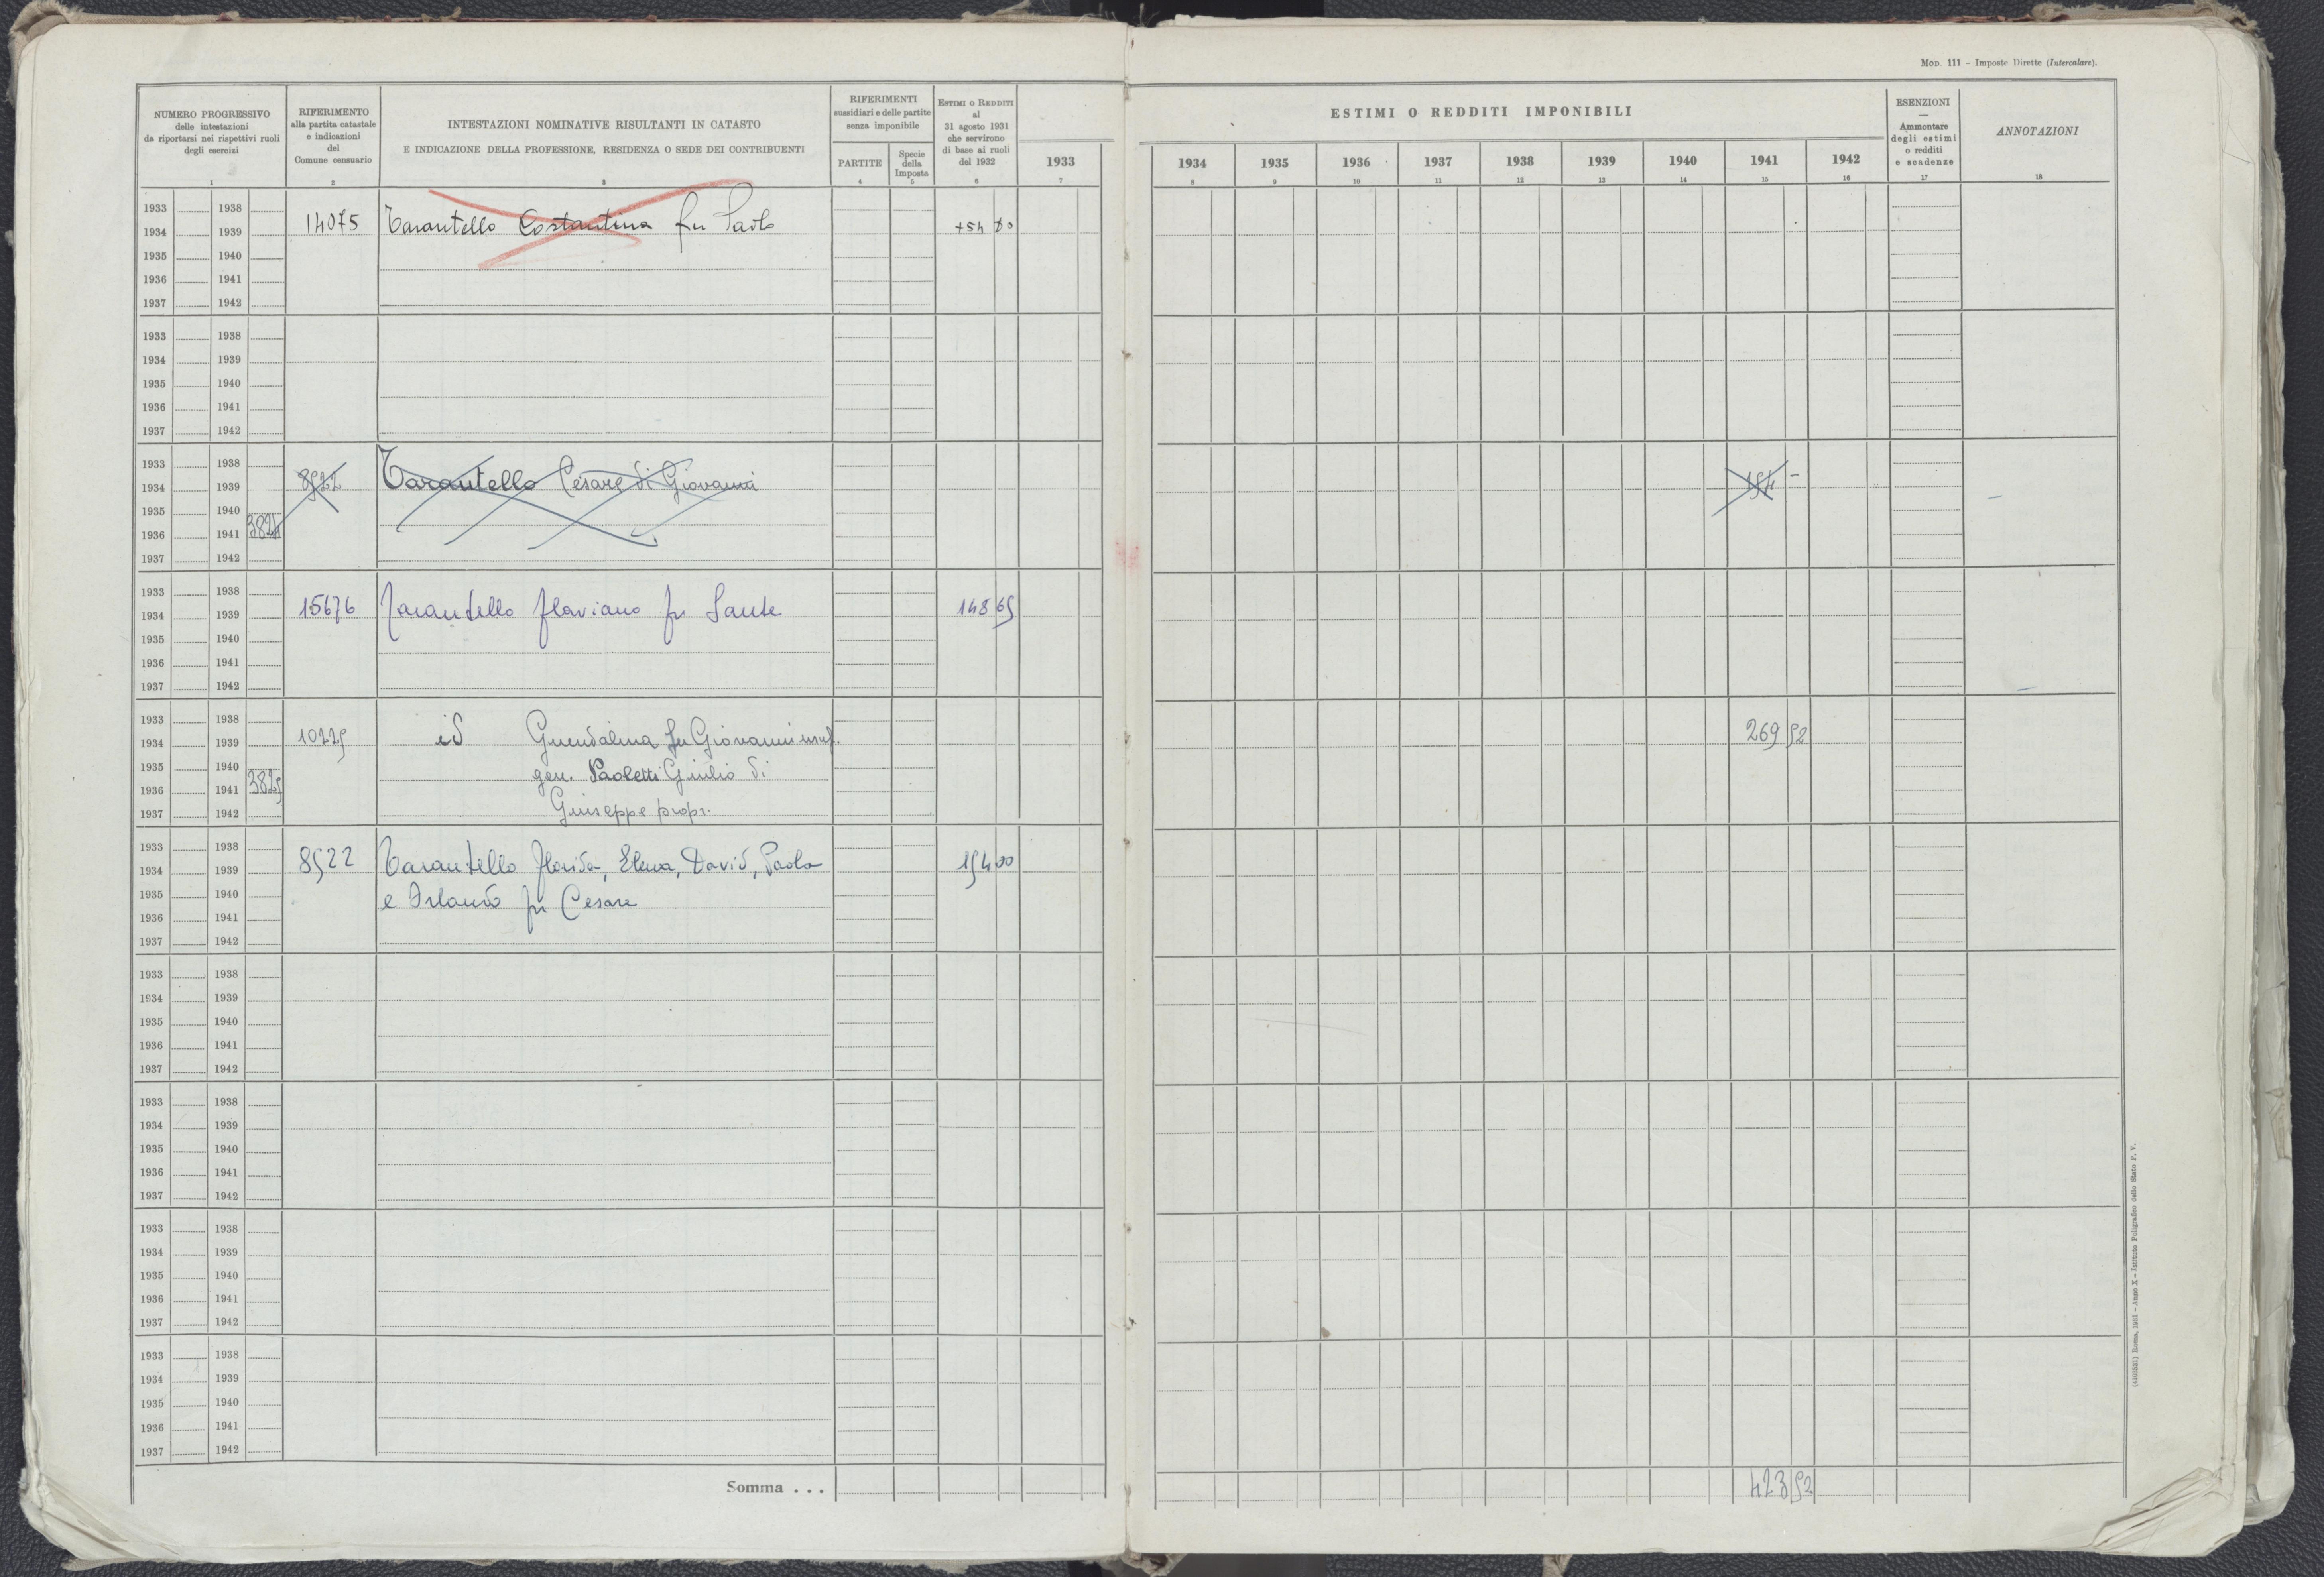 Mod. 111 – Imposte Dirette (Intercalare).
NUMERO PROGRESSIVO
delle intestazioni
da riportarsi nei rispettivi ruoli
degli esercizi
1
RIFERIMENTO
alla partita catastale
e indicazioni
del
Comune censuario
2
INTESTAZIONI NOMINATIVE RISULTANTI IN CATASTO
E INDICAZIONE DELLA PROFESSIONE, RESIDENZA O SEDE DEI CONTRIBUENTI
3
RIFERIMENTI
sussidiari e delle partite
senza imponibile
PARTITE
4
Specie
della
Imposta
5
Estimi o Redditi
al
31 agosto 1931
che servirono
di base ai ruoli
del 1932
6
1933
7
ESTIMI O REDDITI IMPONIBILI
1934 1935 1936 1937 1938 1939 1940 1941 1942
8 9 10 11 12 13 14 15 16
ESENZIONI
—
Ammontare
degli estimi
o redditi
e scadenze
17
ANNOTAZIONI
18
1933 1938
1934 1939 14075 Tarantello Costantina fu Paolo
1935 1940
1936 1941
1937 1942
1933 1938
1934 1939
1935 1940
1936 1941
1937 1942
1933 1938
1934 1939 8522 Tarantello Cesare di Giovanni 154 –
1935 1940
1936 1941 3824
1937 1942
1933 1938
1934 1939 15676 Tarantello Flaviano fu Sante 148 65
1935 1940
1936 1941
1937 1942
1933 1938
1934 1939 10225 id Guendalina fu Giovanni usuf. 269 52
1935 1940 gen. Paoletti Giulio di
1936 1941 3825
1937 1942 Giuseppe propr.
1933 1938
1934 1939 8522 Tarantello Florida, Elena, David, Paola 154 00
1935 1940 e Orlando fu Cesare
1936 1941
1937 1942
1933 1938
1934 1939
1935 1940
1936 1941
1937 1942
1933 1938
1934 1939
1935 1940
1936 1941
1937 1942
1933 1938
1934 1939
1935 1940
1936 1941
1937 1942
1933 1938
1934 1939
1935 1940
1936 1941
1937 1942
Somma . . . 423 52
Roma, 1931 – Anno X – Istituto Poligrafico dello Stato P. V.